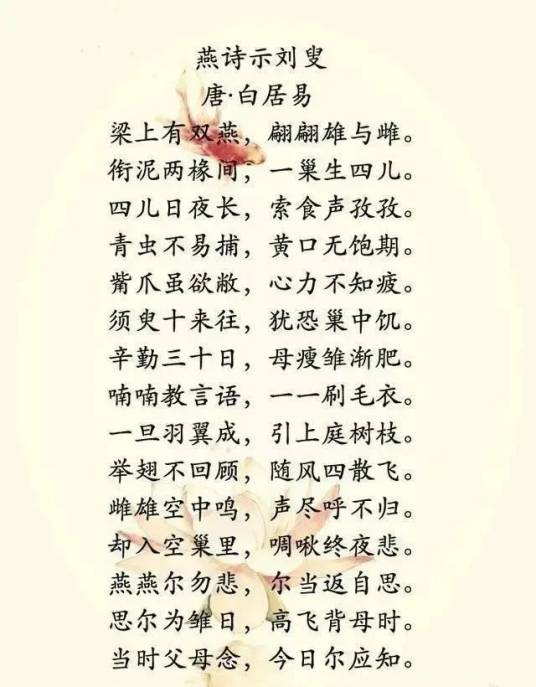 燕诗示刘叟
唐·白居易
梁上有双燕，翩翩雄与雌。
衔泥两椽间，一巢生四儿。
四儿日夜长，索食声孜孜。
青虫不易捕，黄口无饱期。
觜爪虽欲敝，心力不知疲。
须臾十来往，犹恐巢中饥。
辛勤三十日，母瘦雏渐肥。
喃喃教言语，一一刷毛衣。
一旦羽翼成，引上庭树枝。
举翅不回顾，随风四散飞。
雌雄空中鸣，声尽呼不归。
却入空巢里，啁啾终夜悲。
燕燕尔勿悲，尔当返自思。
思尔为雏日，高飞背母时。
当时父母念，今日尔应知。